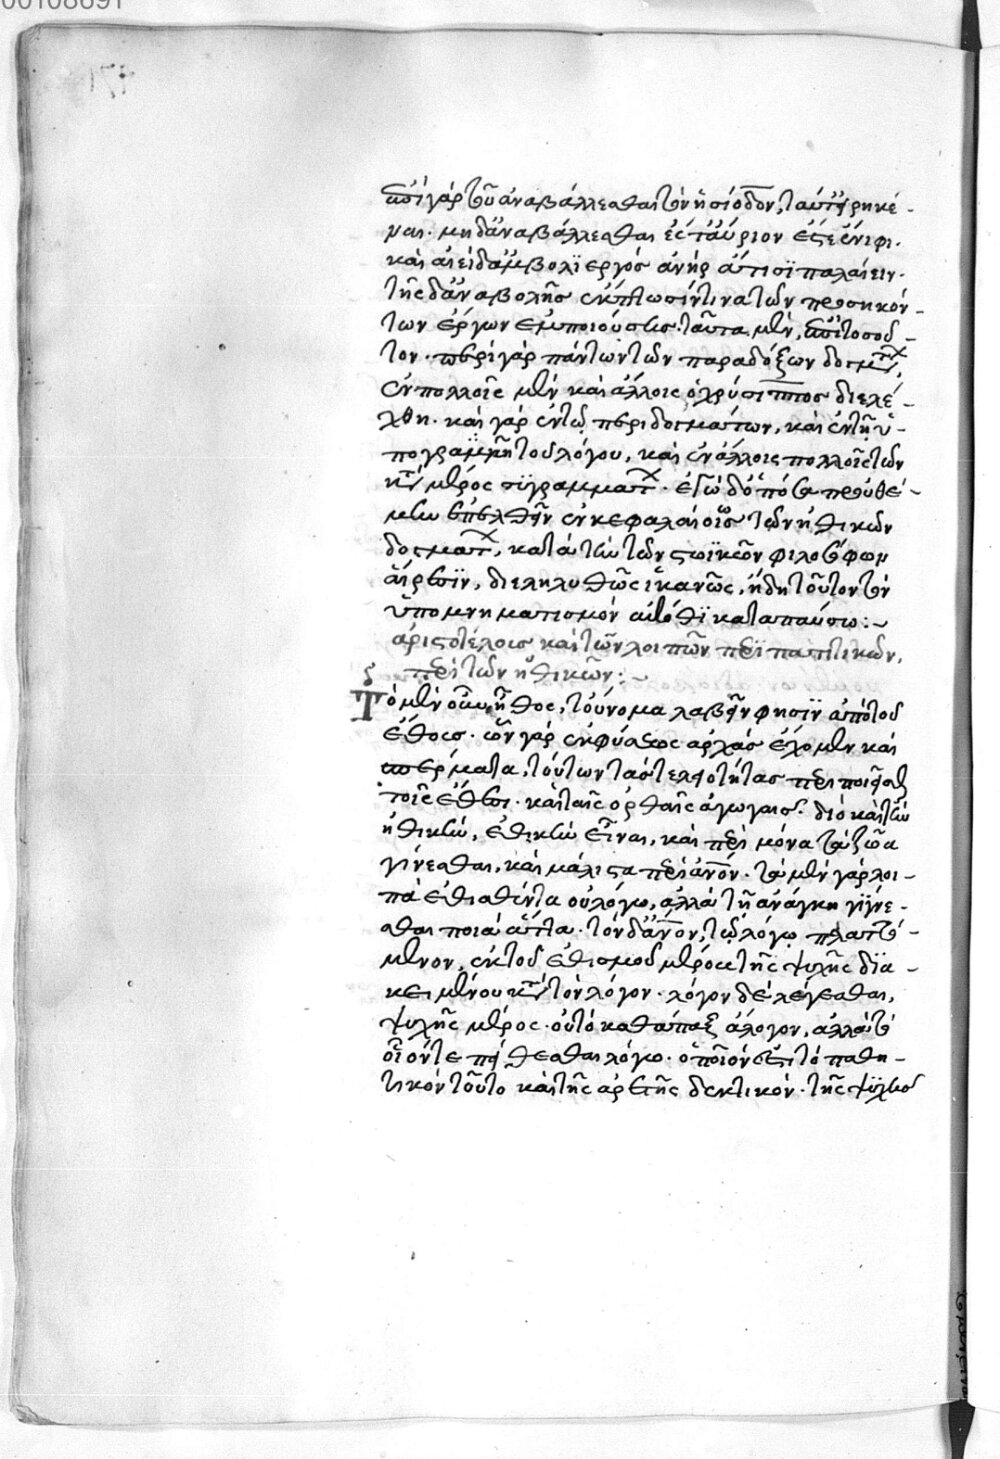 00108691
ἐπεὶ γὰρ τοῦ ἀναβάλλεσθαι τὸν ἡσίοδον, ταῦτ' εἰρηκέ-
ναι· μηδ' ἀναβάλλεσθαι ἐς τ' αὔριον ἔς τε ἔννηφι·
καὶ αἰεὶ δ' ἀμβολιεργὸς ἀνὴρ ἄτῃσι παλαίειν·
τῆς δ' ἀναβολῆς ἔκπτωσίν τινα τῶν προσηκόν-
των ἔργων ἐμποιούσης· ταῦτα μὲν, ἐπὶ τοσοῦ-
τον· περὶ γὰρ πάντων τῶν παραδόξων δογμάτων,
ἐν πολλοῖς μὲν καὶ ἄλλοις ὁ χρύσιππος διελέ-
χθη· καὶ γὰρ ἐν τῷ περὶ δογμάτων, καὶ ἐν τῇ ὑ-
πογραφῇ τοῦ λόγου, καὶ ἐν ἄλλοις πολλοῖς τῶν
κατὰ μέρος συγγραμμάτων· ἐγὼ δ' ὁπόσα προὐθέ-
μην ἐπελθεῖν ἐν κεφαλαίοις τῶν ἠθικῶν
δογμάτων, κατὰ τὴν τῶν στωϊκῶν φιλοσόφων
αἵρεσιν, διεληλυθὼς ἱκανῶς, ἤδη τοῦτον τὸν
ὑπομνηματισμὸν αὐτόθι καταπαύσω:~
ἀριστοτέλους καὶ τῶν λοιπῶν περιπατητικῶν,
περὶ τῶν ἠθικῶν:~
Τὸ μὲν οὖν ἦθος, τοὔνομα λαβεῖν φησὶν ἀπὸ τοῦ
ἔθους· ὧν γὰρ ἐκ φύσεως ἀρχὰς ἔχομεν καὶ
σπέρματα, τούτων τὰς τελειότητας περιποιεῖσθαι
τοῖς ἔθεσι· καὶ ταῖς ὀρθαῖς ἀγωγαῖς· διὸ καὶ τὴν
ἠθικὴν, ἐθικὴν εἶναι, καὶ περὶ μόνα τὰ ζῷα
γίνεσθαι, καὶ μάλιστα περὶ ἄνον· τὰ μὲν γὰρ λοι-
πὰ ἐθισθέντα οὐ λόγῳ, ἀλλὰ τῇ ἀνάγκῃ γίγνε-
σθαι ποιὰ ἄττα· τὸν δ' ἄνον, τῷ λόγῳ πλαττό-
μενον, ἐκ τοῦ ἐθισμοῦ μέρους τῆς ψυχῆς δια-
κειμένου κατὰ τὸν λόγον· λόγον δὲ λέγεσθαι,
ψυχῆς μέρος· οὐ τὸ καθάπαξ ἄλογον, ἀλλὰ τὸ
οἷόν τε πείθεσθαι λόγῳ· ὁποῖόν ἐστι τὸ παθη-
τικὸν τοῦτο καὶ τῆς ἀρετῆς δεκτικόν· τῆς ψυχῆς